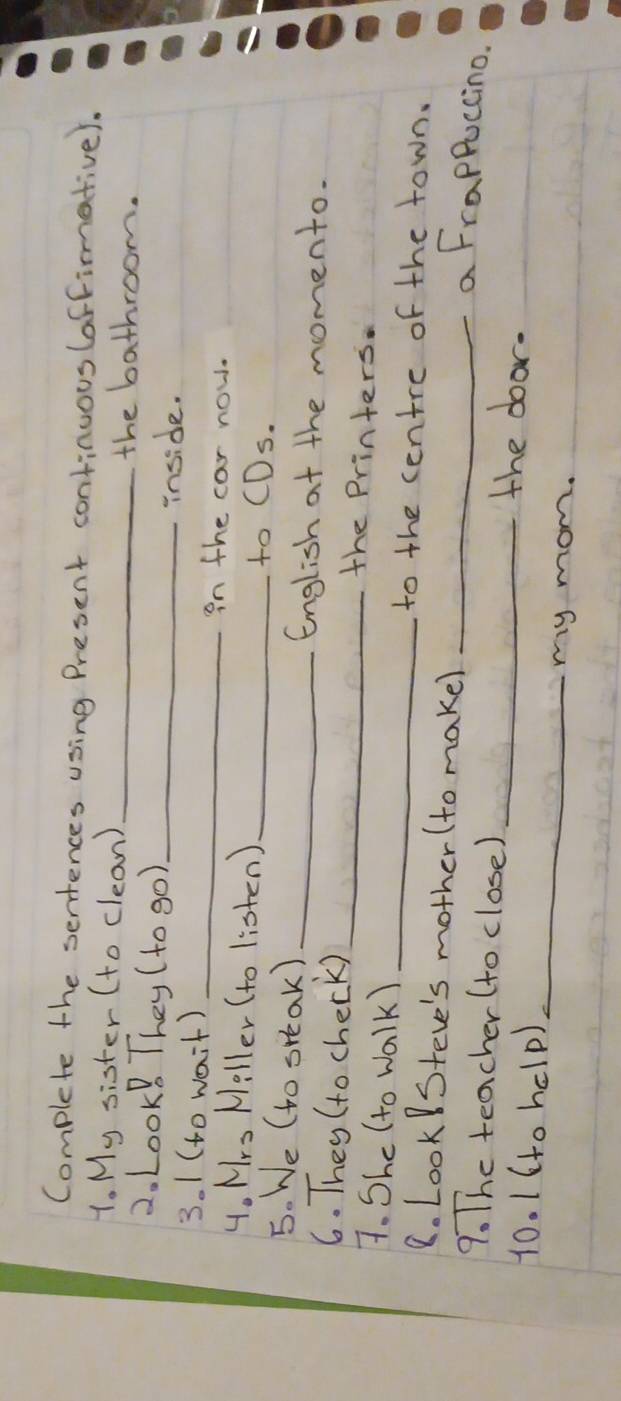 Complete the sentences using Present continuous (affirmative).
1. My sister (to clean) __________ the bathroom.
2. Look! They (to go) __________ inside.
3. I (to wait) __________ in the car now.
4. Mrs Miller (to listen) __________ to CDs.
5. We (to speak) __________ English at the momento.
6. They (to check) __________ the Printers.
7. She (to walk) __________ to the centre of the town.
8. Look! Steve's mother (to make) __________ a Frappuccino.
9. The teacher (to close) __________ the door.
10. I (to help) __________ my mom.